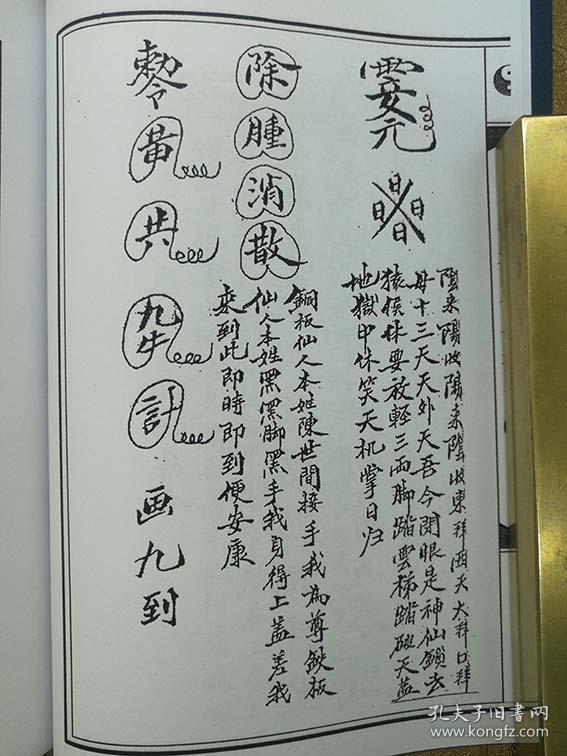 陰来陽收陽来陰收東拜西天大拜口拜
母十三天天外天吾今闭眼是神仙鎖去
猿侯休要放輕三兩脚踏雲梯踏破天蓋
地獄中休笑天机掌日归
日日日日
除
腫
消
散
銅板仙人本姓陳世間接手我為尊鉄板
仙人本姓黑黑脚黑手我身得上蓋差我
来到此即時即到便安康
勅令
黃
共
九牛
計
画九到
孔夫子旧书网
www.kongfz.com